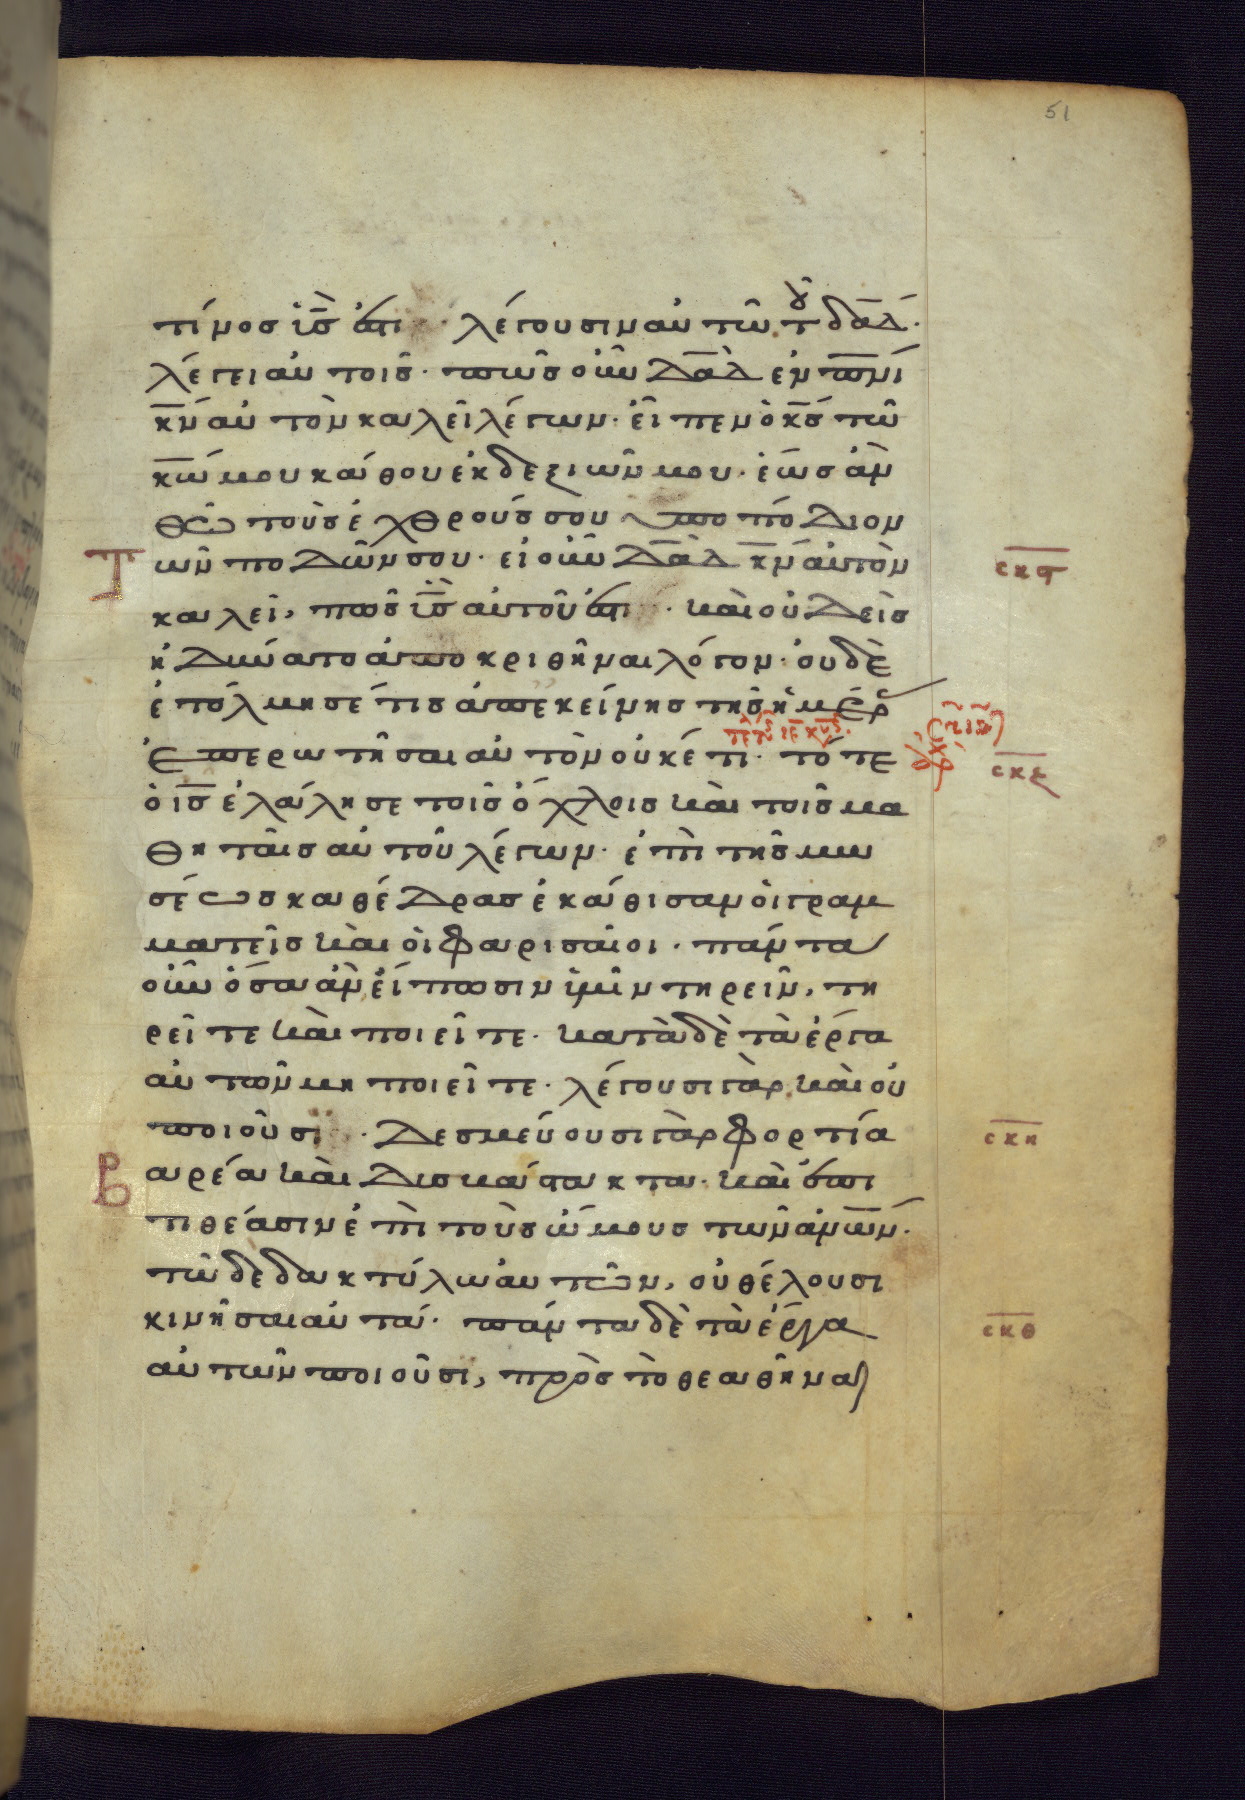 51
τίνοσ ϊ̅σ̅ ἐστι · λέγουσιν αὐτῶ τοῦ δα̅δ̅ ·
λέγει αὐτοῖσ · πῶσ οὖν δα̅δ̅ ἐν π̅ν̅ι̅
κ̅ν̅ αὐτὸν καλεῖ λέγων · εἶπεν ὁ κ̅σ̅ τῶ
κ̅ω̅ μου κάθου ἐκ δεξιῶν μου · ἕωσ ἂν
θῶ τοὺσ ἐχθρούσ σου ὑποπόδιον
τῶν ποδῶν σου · εἰ οὖν δα̅δ̅ κ̅ν̅ αὐτὸν
σκϛ
καλεῖ, πῶσ ϊ̅σ̅ αὐτοῦ ἐστι · καὶ οὐδεὶσ
ἠδύνατο ἀποκριθῆναι λόγον · ουδὲ
ἐτόλμησέ τισ ἀπεκείνησ τῆσ ἡμέρ
ἐπερωτῆσαι αὐτὸν οὐκέτι · τότε
σκζ
ὁ ι̅σ̅ ἐλάλησε τοῖσ ὄχλοισ καὶ τοῖσ μα
θηταῖσ αὐτοῦ λέγων · ἐπὶ τῆσ μω
σέωσ καθέδρασ ἐκάθισαν οἱ γραμ
ματεῖσ καὶ οἱ φαρισαῖοι · πάντα
οὖν ὅσα ἂν εἴπωσιν ὑμῖν τηρεῖν, τη
ρεῖτε καὶ ποιεῖτε · κατὰ δὲ τὰ έργα
αὐτῶν μη ποιεῖτε · λέγουσι γὰρ καὶ οὐ
ποιοῦσι · δεσμεύουσι γὰρ φορτία
σκη
βαρέα καὶ δυσβάστακτα · καὶ ἐπι
τιθέασιν ἐπὶ τοὺσ ὤμουσ τῶν α̅ν̅ω̅ν̅ ·
τῶ δε δακτύλω αὐτῶν, οὐ θέλουσι
κινῆσαι αὐτά · πάντα δὲ τὰ ἔργα
σκθ
αὐτῶν ποιοῦσι, πρὸσ τὸ θεαθῆναι